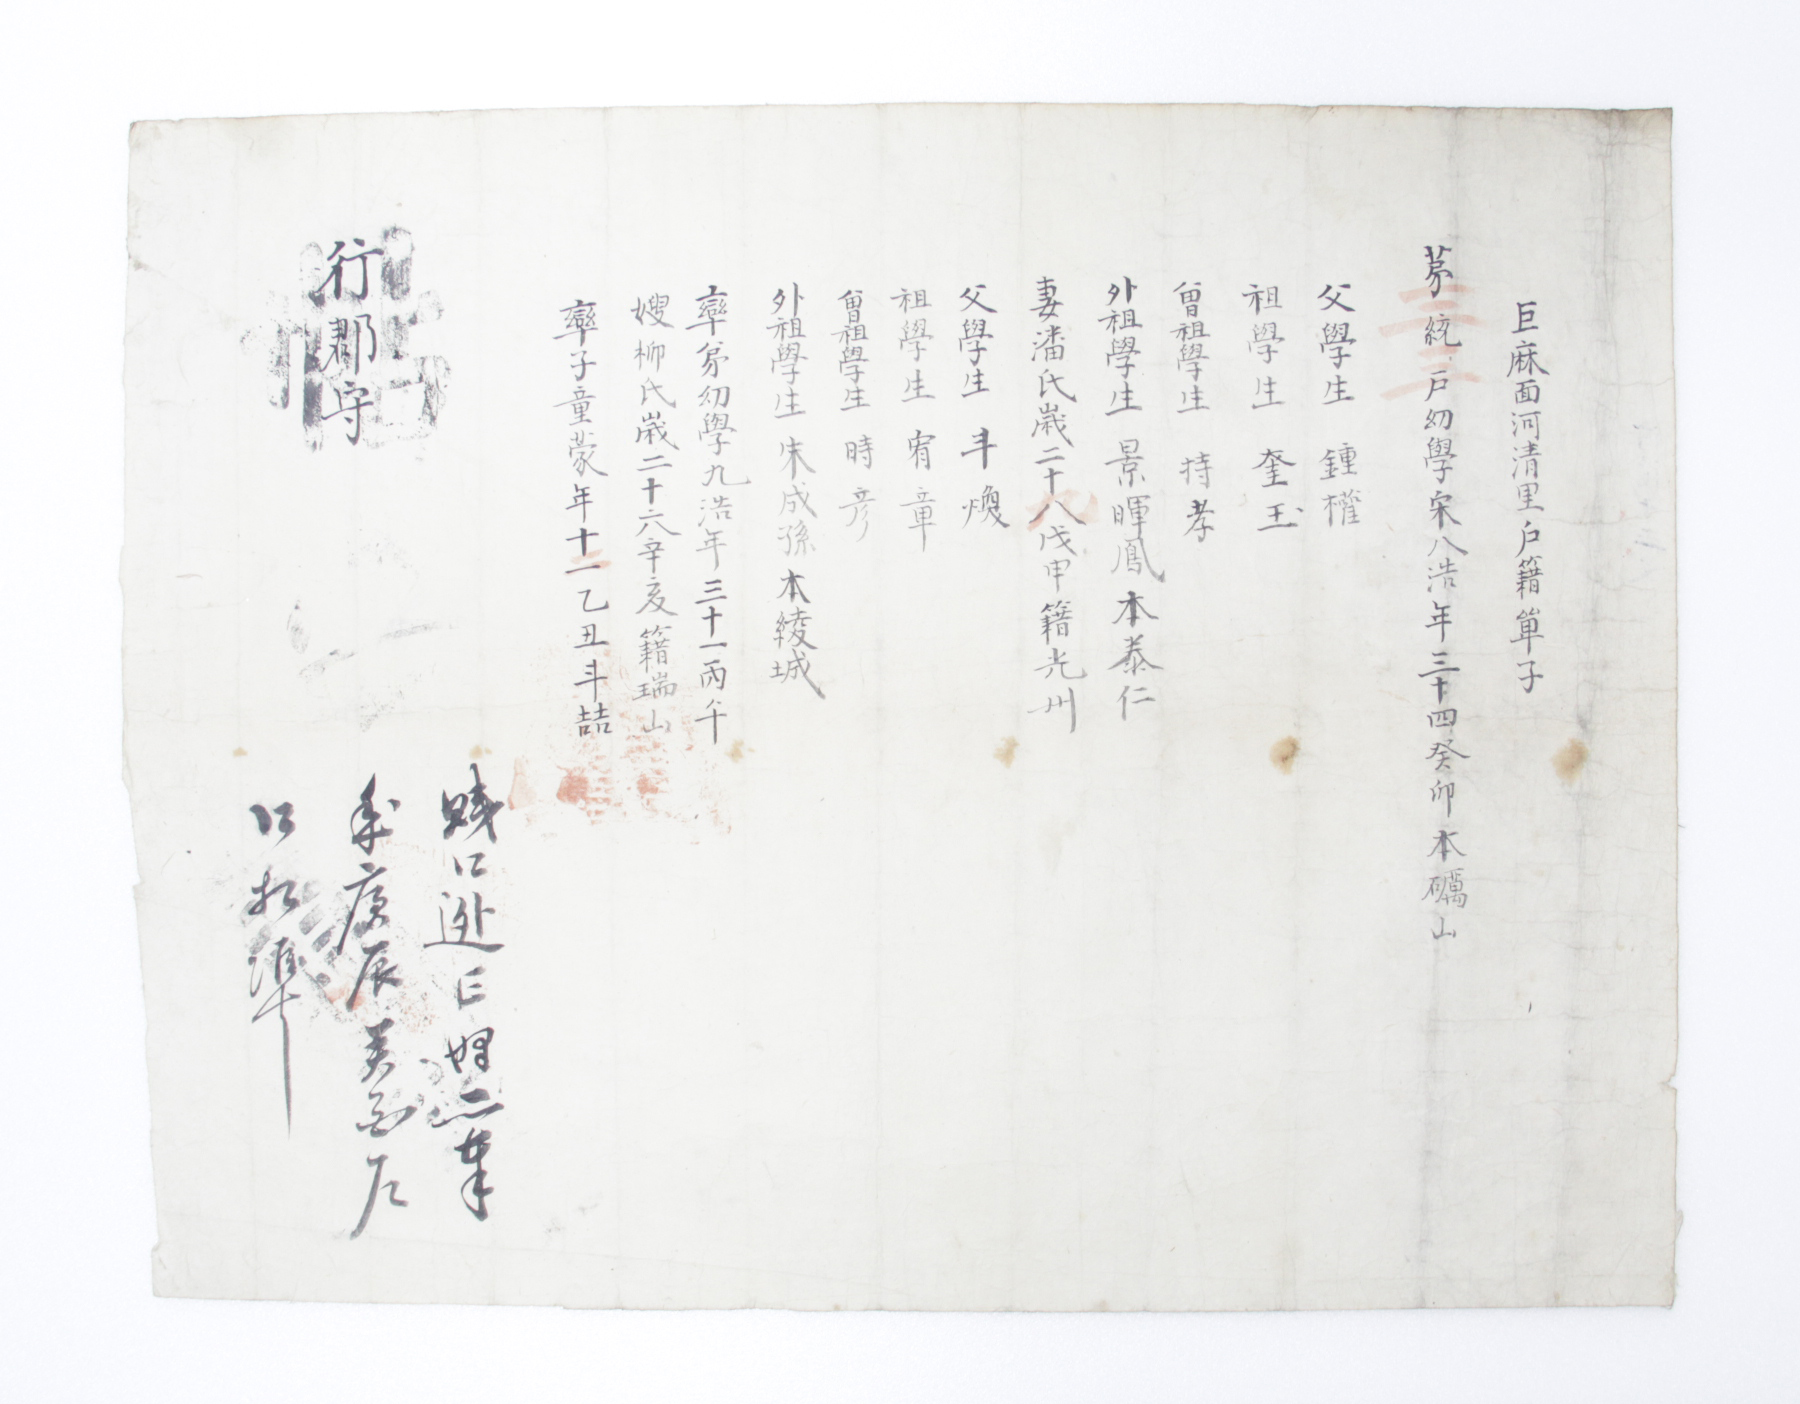 巨麻面河清里戶籍單子
第三統三戶幼學宋八浩年三十四癸卯本礪山
父學生 鍾權
祖學生 奎玉
曾祖學生 持孝
外祖學生景暉鳳本泰仁
妻潘氏歲二十八戊申籍光州
父學生 斗煥
祖學生 宥章
曾祖學生 時彦
外祖學生朱成孫本綾城
率弟幼學九浩年三十一丙午
嫂柳氏歲二十六辛亥籍瑞山
率子童蒙年十一乙丑斗喆
行郡守
庚辰
準